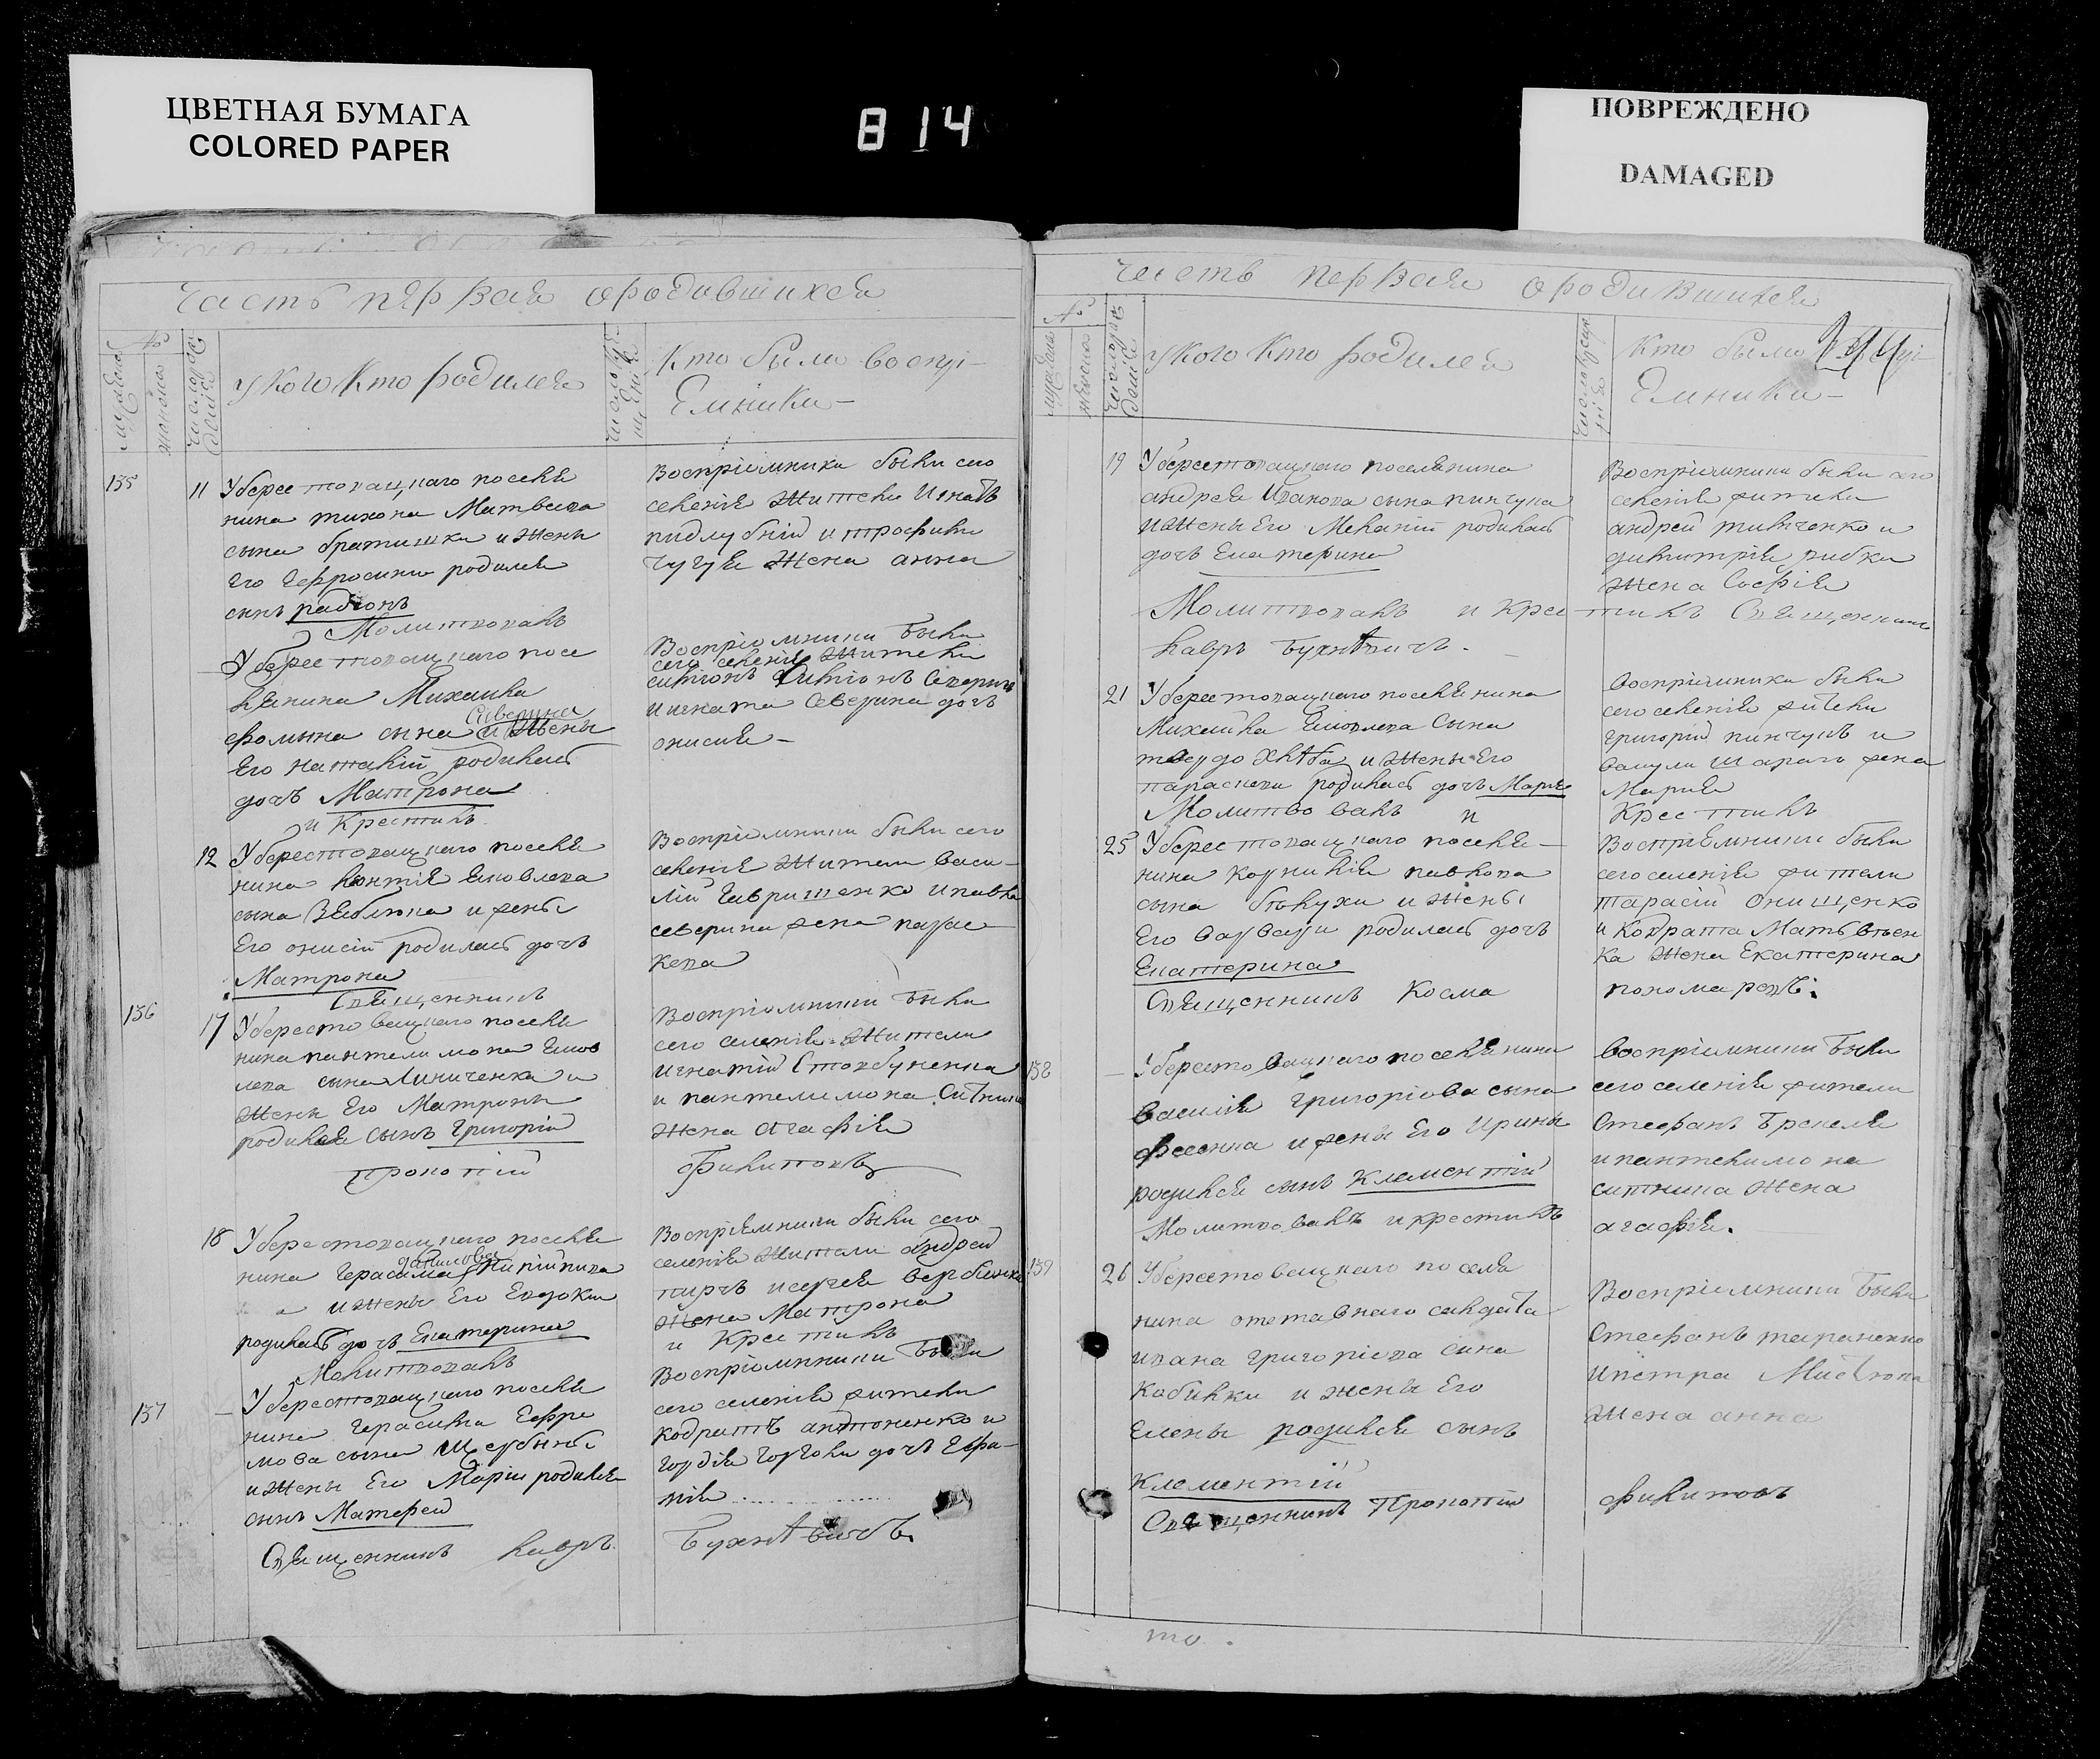 ЦВЕТНАЯ БУМАГА
COLORED PAPER
814
ПОВРЕЖДЕНО
DAMAGED
часть первая ородившихся
№
мужеска
женска
у кого кто родился
кто были воспрі-
Емники-
135
11
Уберестовацкаго поселя
нина тихона Матвеева
сына братишки и жены
Его Чефросиніи родился
сынъ радіонъ
Молитвовалъ
Воспріемники были сего
селенія жители Игнатъ
пидлубній и трофима
чугуя жена анна
Уберестовацкаго посе
лянина Михаила
фомина сына Северина и жены
Его наталіи родилась
дочь Матрона
и Крестилъ
Воспріемники были
сего селенія жители
игната Северина дочь
онисия-
12
Уберестовацкаго поселя
нина леонтія яковлева
сына Зяблюка и жены
Его онисіи родилась дочь
Матрона
Священникъ
Воспріемники были сего
селенія жители васи-
лій Гавришенко и павла
северина жена парас
кева
136
17
Уберестовацкаго поселя
нина пантелимона яков
лева сына Линиченка и
жены Его Матроны
родился сынъ Григорій
прокопій
Воспріемники были
сего селенія жители
игнатій Стовбуненка
и пантелимона Ситника
жена агафія
Филиповъ
18
Уберестовацкаго поселя
нина Герасима данилова
и жены Его Евдокіи
родилась дочь Екатерина
Молитвовалъ
Воспріемники были сего
селенія жители андрей
пирчъ и сергея вербицка
жена Матрона
и Крестилъ
137
Уберестовацкаго поселя
нина Герасима Ефре
мова сына Щербины
и жены Его Маріи родился
сынъ Матефей
Священникъ лавръ
Воспріемники были
сего селенія жители
кодратъ антоненко и
гордія горголи дочь Ефи-
мія
Бухнѣвичъ
часть первая ородившихся
№
мужеска
женска
у кого кто родился
кто были
Емники-
19
Уберестовацкаго поселянина
андрея Иванова сына пинчука
и жены Его Меланіи родилась
дочь Екатерина
Воспріемники были сего
селенія жители
андрей тимченко и
димитрія рибки
жена Софія
Молитвовалъ и крестилъ Священникъ
лавръ Бухнѣвичъ.
21
Уберестовацкаго поселянина
Михаила яковлева сына
твердохлѣба и жены Его
параскеви родилась дочь Марія
Молитвовалъ и
Воспріемники были
сего селенія жители
григорій пинчукъ и
жена
Марія
Крестилъ
25
Уберестовацкаго поселя-
нина корнилія павлова
сына бѣлухи и жены
Его варвары родилась дочь
Екатерина
Священникъ Косма
Воспріемники были
сего селенія жители
тарасій онищенко
и Кондрата Матвѣен
ка жена Екатерина
пономаревъ.
138
Уберестовацкаго поселянина
василія григоріова сына
фесенка и жены Его Ирины
родился сынъ Клементій
Молитвовалъ и крестилъ
Воспріемники были
сего селенія жители
Стефанъ
и пантелимона
ситника жена
агафія.
139
26
Уберестовацкаго поселя
нина отставнаго салдата
ивана григоріева сина
Кобилки и жены Его
Елены родился сынъ
Клементій
Священникъ Прокопій
Воспріемники были
Стефанъ тараненко
и петра
жена анна
Филиповъ
то.